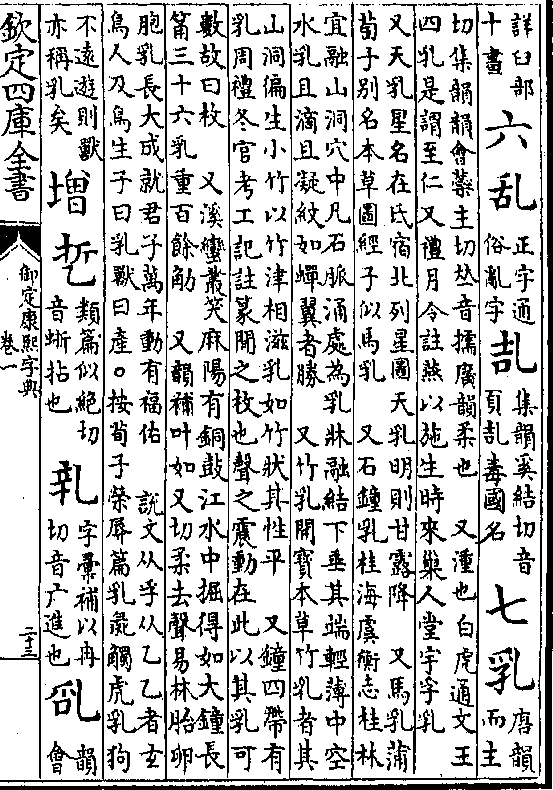 詳臼部
十畫
六
乱
正字通
俗亂字
乩
集韻奚結切音
頁乩毒國名
七
乳
唐韻
而主
切集韻韻會蘂主切𠀤音擩廣韻柔也　又湩也白虎通文王
四乳是謂至仁又禮月令註燕以施生時來巢人堂宇字乳
又天乳星名在氐宿北列星圖天乳明則甘露降　又馬乳蒲
萄子别名本草圖經子似馬乳　又石鐘乳桂海虞衡志桂林
宜融山洞穴中凡石脈涌處為乳牀融結下垂其端輕薄中空
水乳且滴且凝紋如蟬翼者勝　又竹乳開寶本草竹乳者其
山洞偏生小竹以竹津相滋乳如竹狀其性平　又鐘四帶有
乳周禮冬官考工記註篆間之枚也聲之震動在此以其乳可
數故曰枚　又溪蠻叢笑麻陽有銅鼓江水中掘得如大鐘長
筩三十六乳重百餘觔　又韻補叶如又切柔去聲易林胎卵
胞乳長大成就君子萬年動有福佑　說文从孚从乙乙者玄
鳥人及鳥生子曰乳獸曰產○按荀子榮辱篇乳彘觸虎乳狗
不遠遊則獸
亦稱乳矣
增
乴
類篇似絶切
音蜥拈也
字彙補以冉
切音广進也
韻
會
欽定四庫全書
御定康熙字典
卷一
二十三